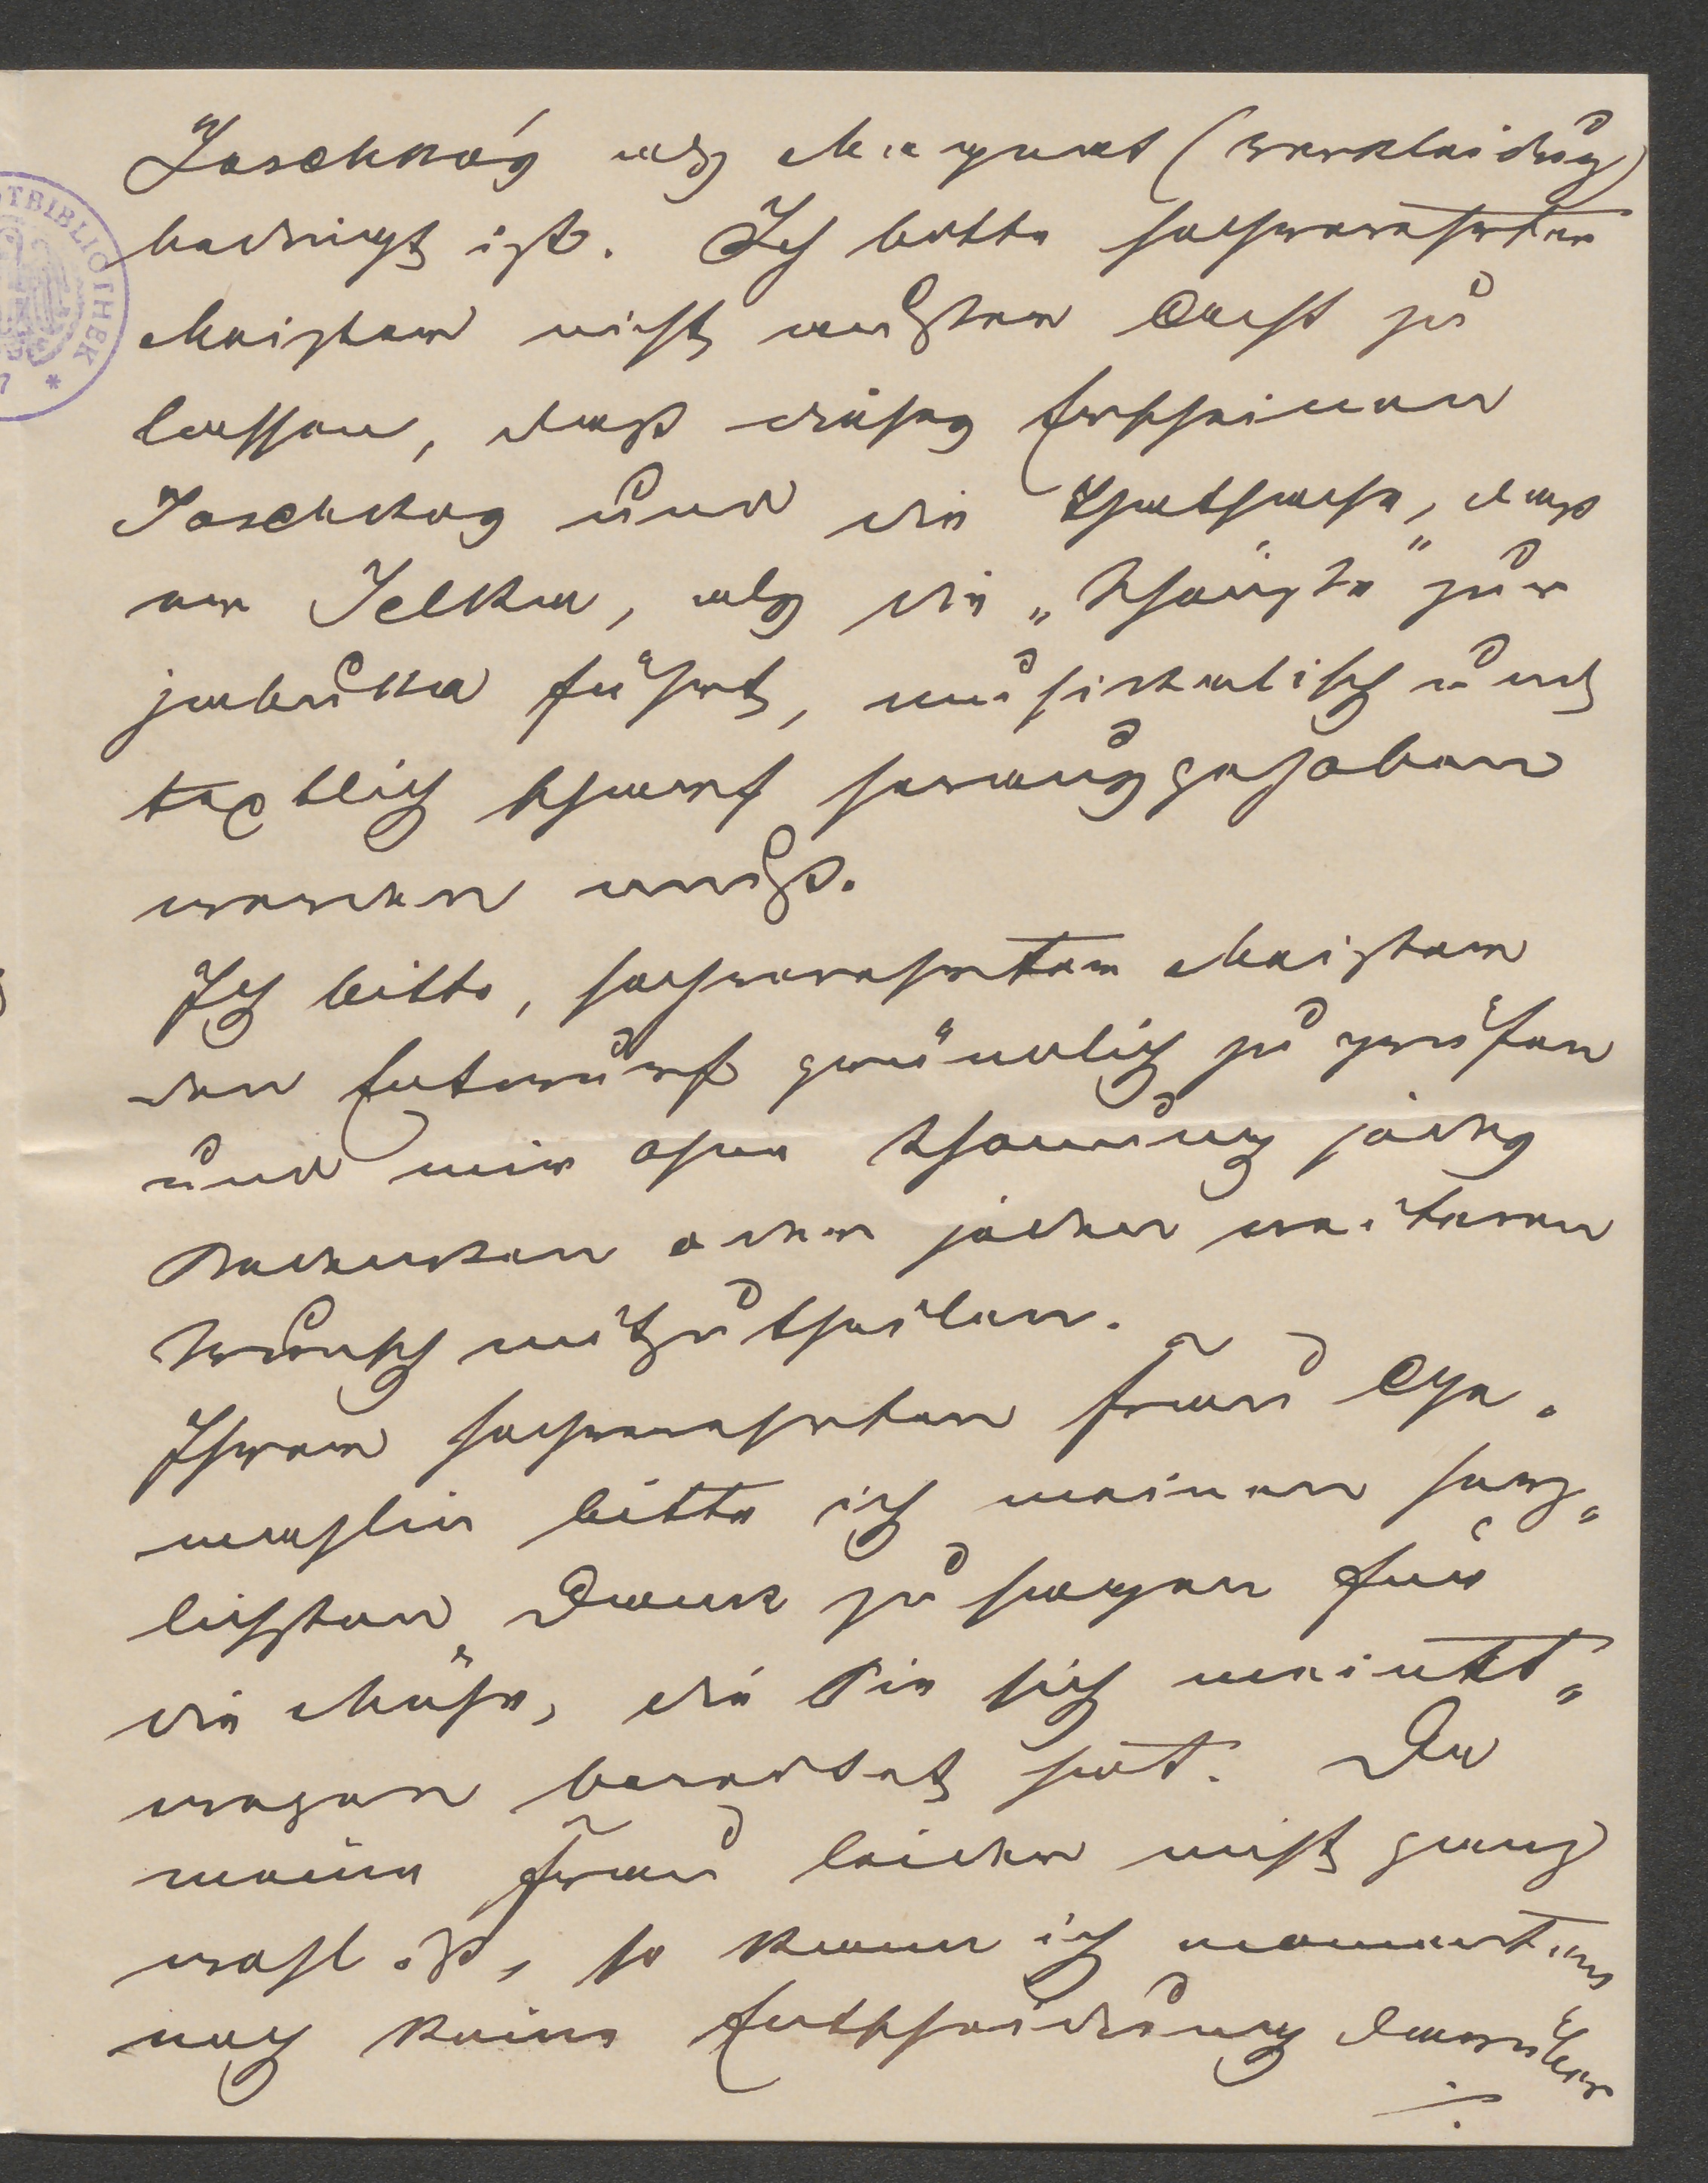 Joschkas als Magnat (Verkleidung)
bedingt ist. Ich bitte hochverehrter
Meister nicht außer Acht zu
lassen, daß dieses Erscheinen
Joschkas und die Thatsache, daß
er Jelka, als die „Schönste“ zur
jabuka führt, musikalisch und
textlich scharf herausgehoben
werden muß.
Ich bitte, hochverehrter Meister
den Entwurf gründlich zu prüfen
und mir ohne Schonung jedes
Bedenken oder jeden weiteren
Wunsch mitzutheilen.
Ihrer hochverehrten Frau Ge-
mahlin bitte ich meinen herz-
lichsten Dank zu sagen für
die Mühe, die Sie sich meinet-
wegen bereitet hat. Da
meine Frau leider nicht ganz
wohl ist, so kann ich momentan
noch keine Entscheidung darüber
./.
OTBIBLIOTHEK
7 *